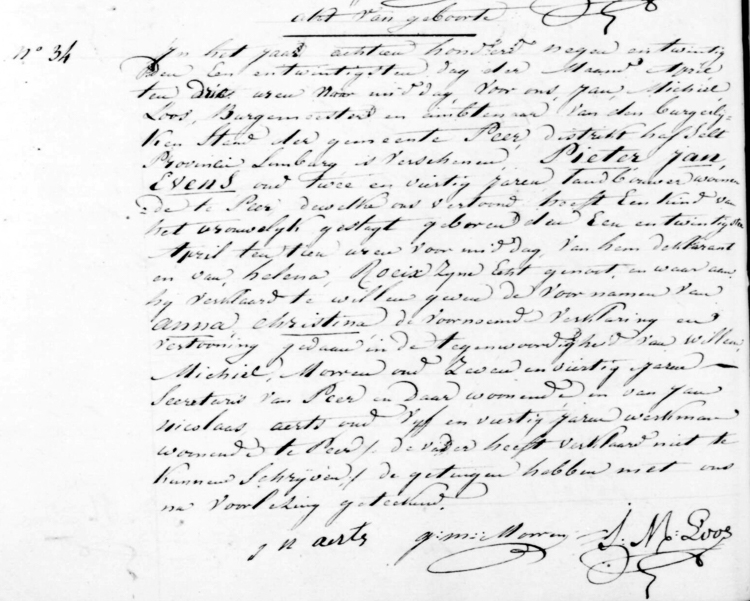 akt van geboorte
N° 34
In het jaar achtien honderd negen en twintig
den een en twintigsten dag der Maand April
ten drie uren naar middag voor ons Jan, Michiel,
Loos, Burgemeester en ambtenaar van den burgerly-
ken Stand der gemeente Peer, distrikt hasselt
Provincie Limburg is verschenen Pieter Jan,
Evens oud twee en viertig Jaren landbouwer woonen-
de te Peer dewelke ons vertoond heeft Een kind van
het vrouwelyk geslagt geboren den Een en twintigsten
April ten tien uren voor middag, van hem deklarant
en van, helena, Rocix zyne Echt genoot, en waar aan
hy verklaard te willen geven de voornamen van
anna, christina de voornoemde verklaring en
vertooning gedaan in de tegenwoordigheid van willem
Michiel, Morren oud zeven en viertig Jaren —
Secretaris van Peer en daar woonende en van Jan
nicolaas, aerts oud vyf en viertig Jaren werkman
woonende te Peer / de vader heeft verklaard niet te
kunnen Schryven / de getuigen hebben met ons
na voorlezing geteekend.
J N aerts g: m: Morren J: M: Loos